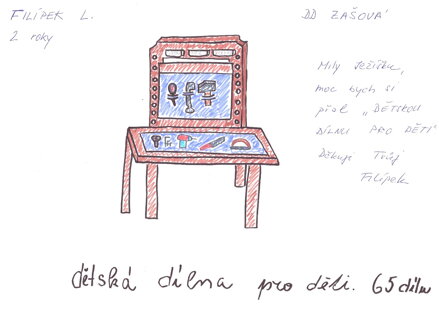 FILÍPEK L.
2 roky
DD ZAŠOVÁ
Milý Ježíšku,
moc bych si
přál „DĚTSKOU
DÍLNU PRO DĚTI"
Děkuje Tvůj
Filípek
dětská dílna pro děti. 65 dílů